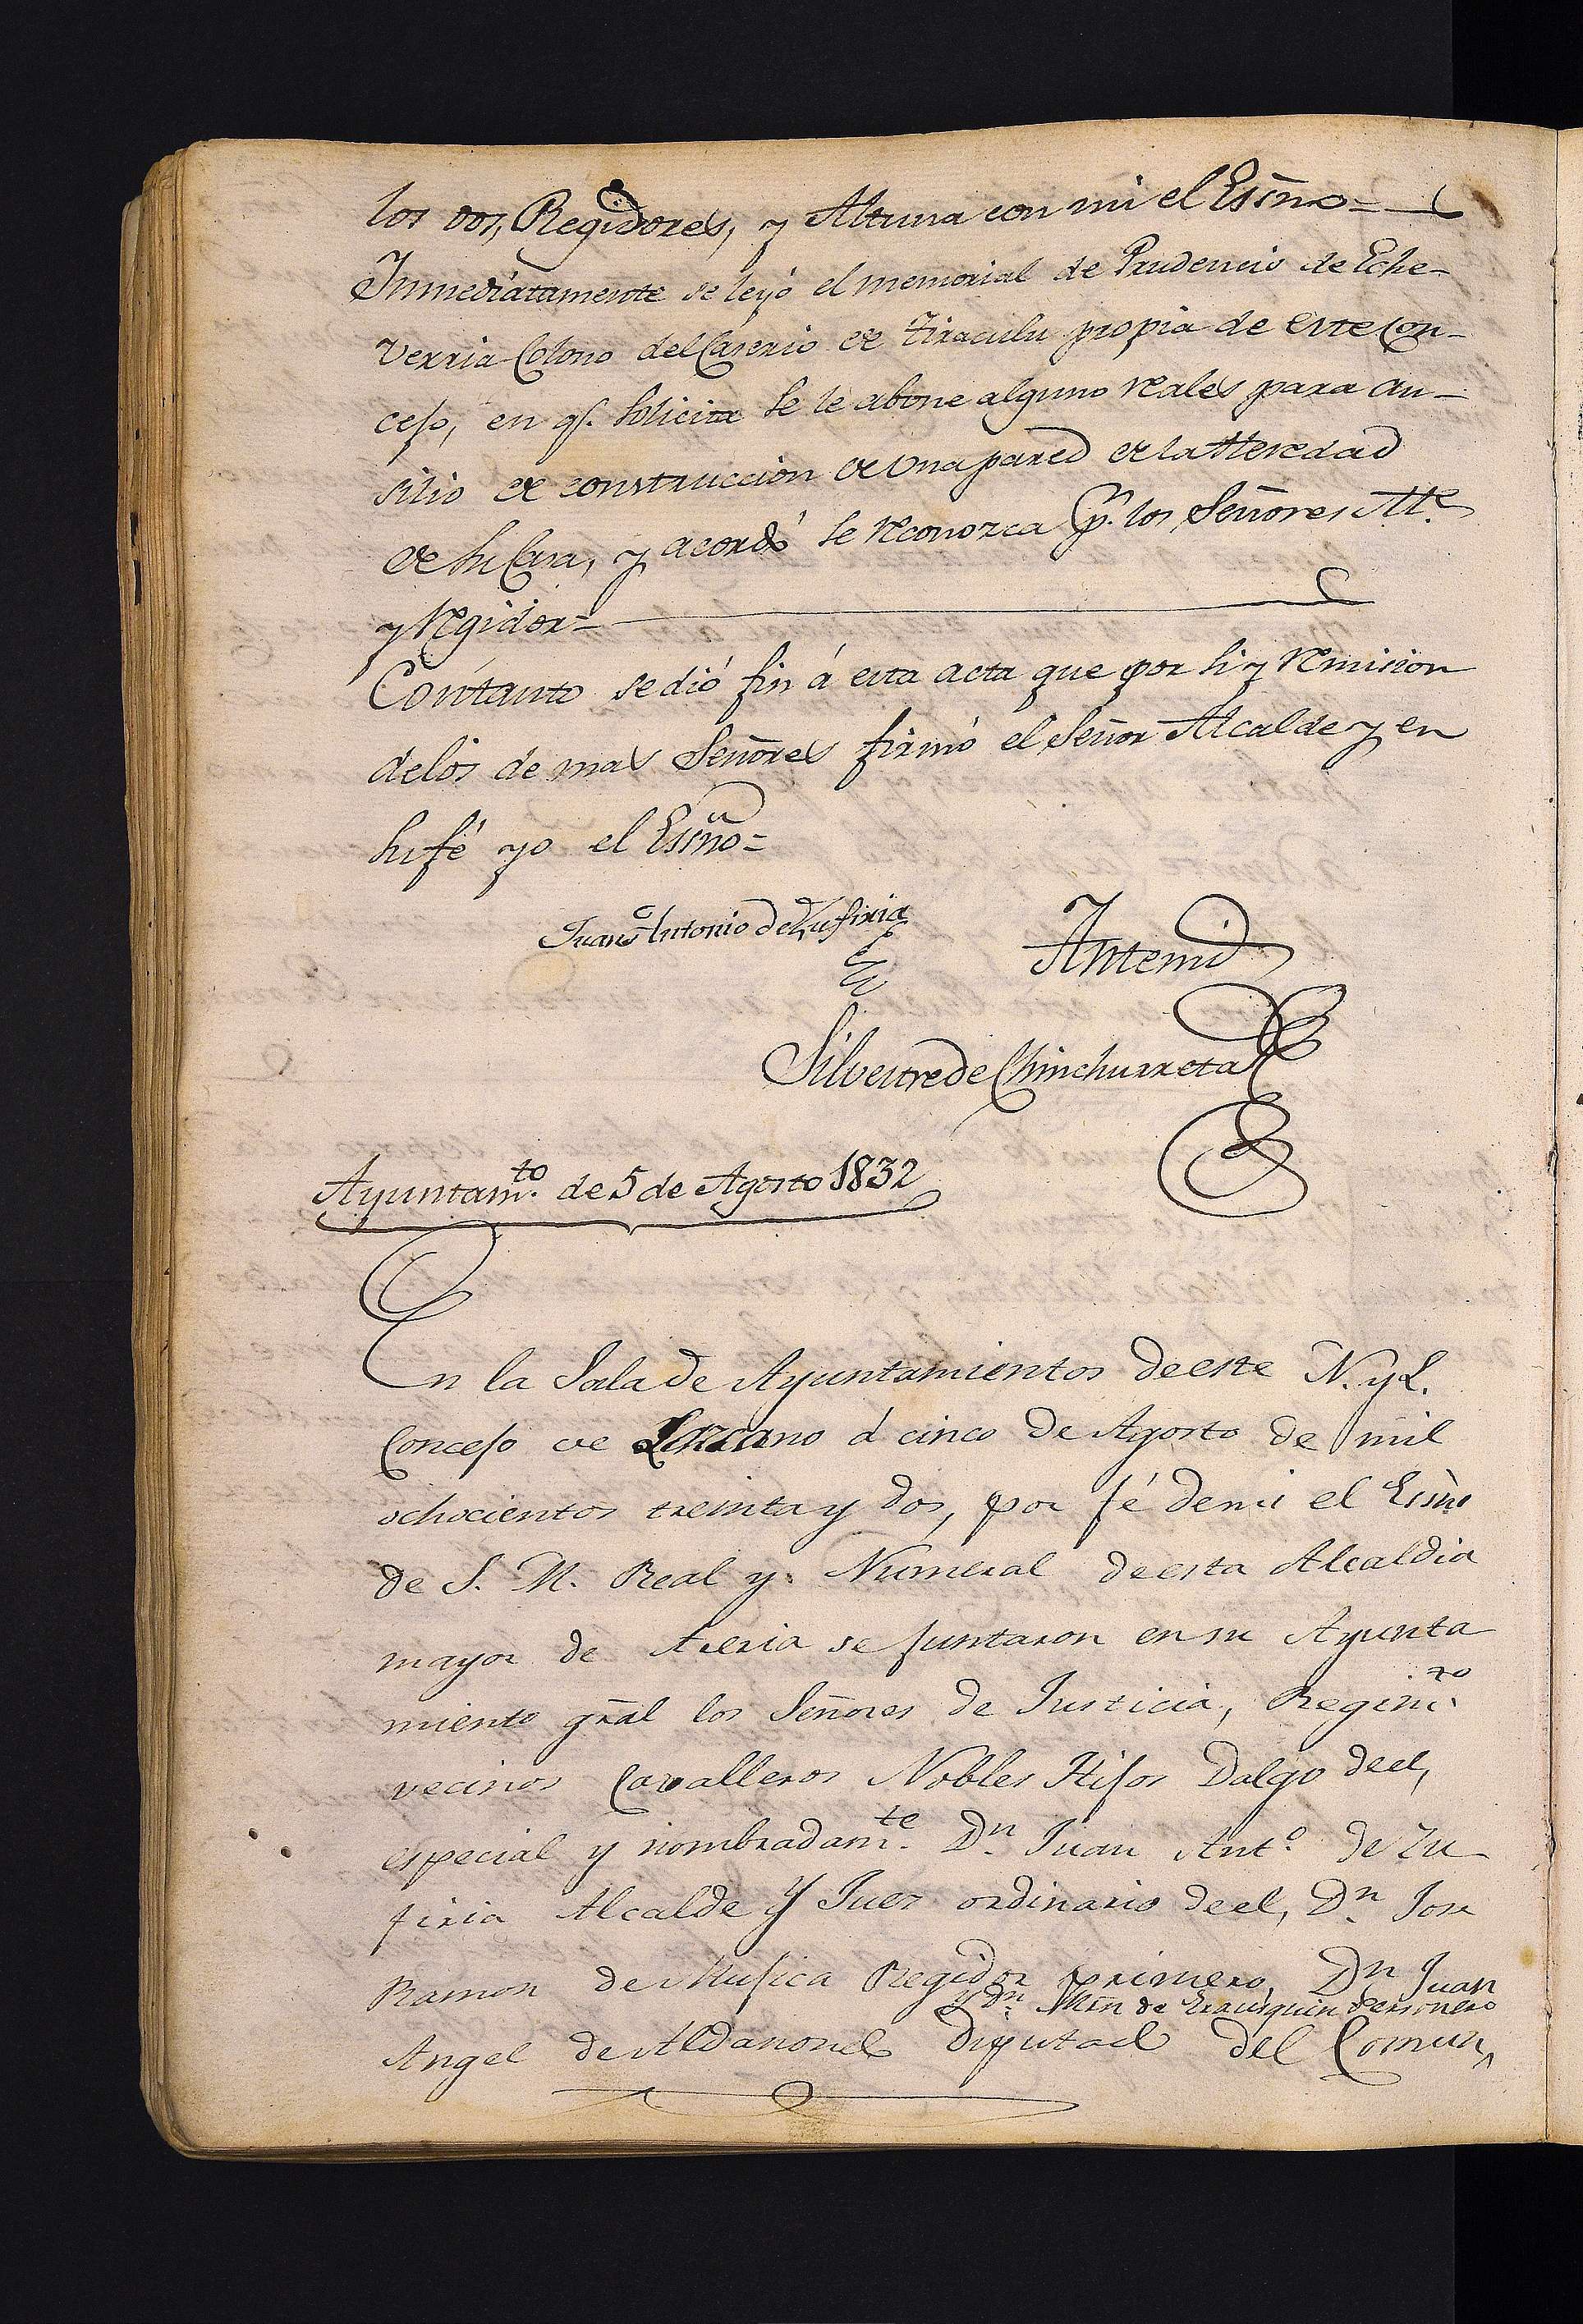 los dos, Regidores, y Altuna con mi el Essno=
Inmediatamente se leyó el memorial de Prudencio de Eche-
verria Colono del Caserio de Tiraculu propia de este Con-
cejo, en qe. solicita se le abone alguno reales para au-
silio de construccion de una pared de la Heredad
de su Casa, y acordó se reconozca pr. los Señores Alle.
y Regidor=
Contanto se dió fin á esta acta que por si y remision
delos de mas Señores firmó el Señor Alcalde y en
su fé yo el Essno=
Juan Antonio de Zufiria
Antemi
Silvestre de Chinchurreta
Ayuntamto. de 5 de Agosto 1832
En la Sala de Ayuntamientos de este N. y L.
Concejo de Lazcano á cinco de Agosto de mil
ochocientos treinta y dos, por fé de mi el Essno
de S. M. Real y Númeral de esta Alcaldia
mayor de Aeria se juntaron en su Ayunta
miento gral los Señores de Justicia, Regimto
vecinos Cavalleros Nobles Hijos Dalgo de el,
especial y nombradamte. Dn. Juan Anto. de Zu
firia Alcalde y Juez ordinario de el, Dn. Jose
Ramon de Musica Regidor primero, Dn Juan
y Dn. Mrn de Erausquin Personero
Angel de Aldanondo Diputad del Comun,